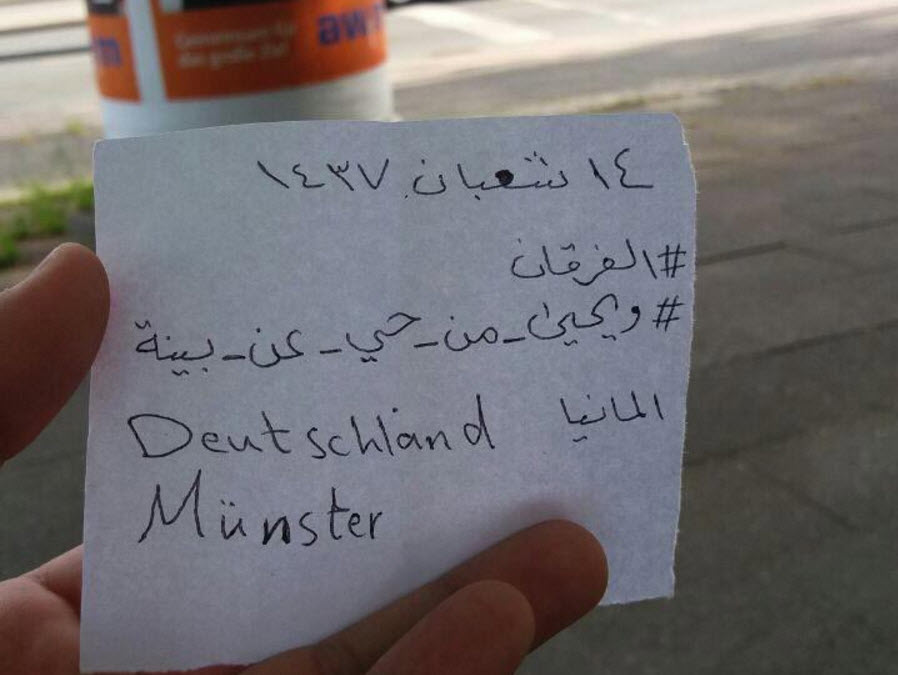 Gemeinsam für
das große Ziel
aw
m
١٤ شعبان ١٤٣٧
#الفرقان
#ويحيىٰ_من_حي_عن_بينة
المانيا Deutschland
Münster